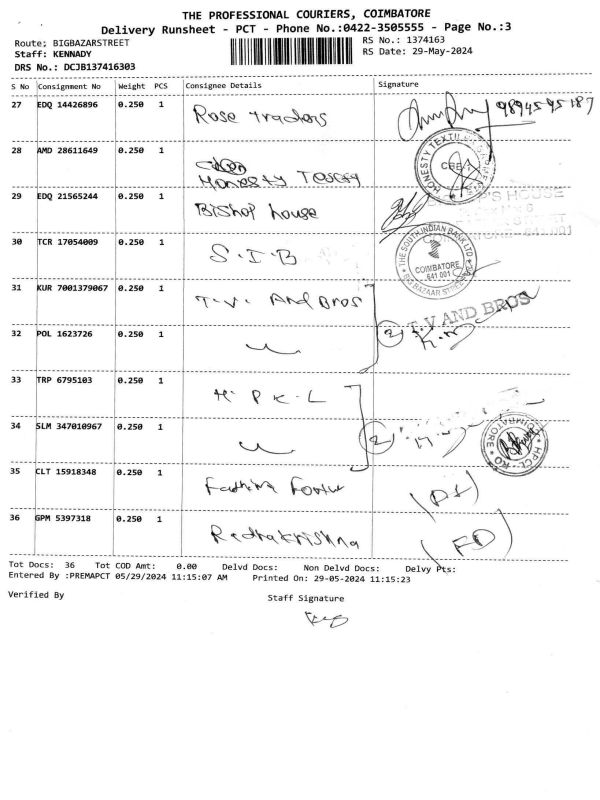 THE PROFESSIONAL COURIERS, COIMBATORE
Delivery Runsheet - PCT - Phone No.:0422-3505555 - Page No.:3
Route; BIGBAZARSTREET
RS No.: 1374163
Staff: KENNADY
RS Date: 29-May-2024
DRS No.: DCJB137416303
S No Consignment No Weight PCS Consignee Details Signature
27 EDQ 14426896 0.250 1 Rose traders 9894595187
28 AMD 28611649 0.250 1
Honesty HONESTY CBE-1
29 EDQ 21565244 0.250 1 Bishop house HOUSE
641 001
30 TCR 17054009 0.250 1 S.I.B THE SOUTH INDIAN BANK LTD COIMBATORE 641 001 BIG BAZAAR STREET
31 KUR 7001379067 0.250 1 T.V. And Bros
32 POL 1623726 0.250 1 2 T.V AND BROS
33 TRP 6795103 0.250 1 H.P.K.L
34 SLM 347010967 0.250 1 2 COIMBATORE HPCL-RO
35 CLT 15918348 0.250 1 Fathima
36 GPM 5397318 0.250 1 Radhakrishna (FD)
Tot Docs: 36 Tot COD Amt: 0.00 Delvd Docs: Non Delvd Docs: Delvy Pts:
Entered By :PREMAPCT 05/29/2024 11:15:07 AM Printed On: 29-05-2024 11:15:23
Verified By Staff Signature